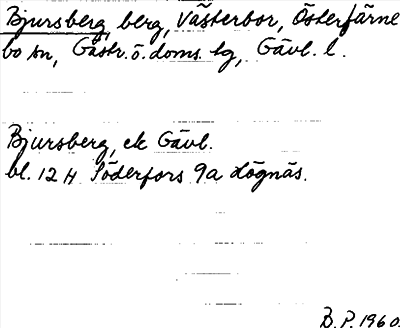 Bjursberg, berg, Västerbor, Österfärne
bo sn, Gästr. ö. doms. tg, Gävl. l.
Bjursberg, ek Gävl.
bl. 12 H Söderfors 9a Lögnäs.
B. P. 1960.